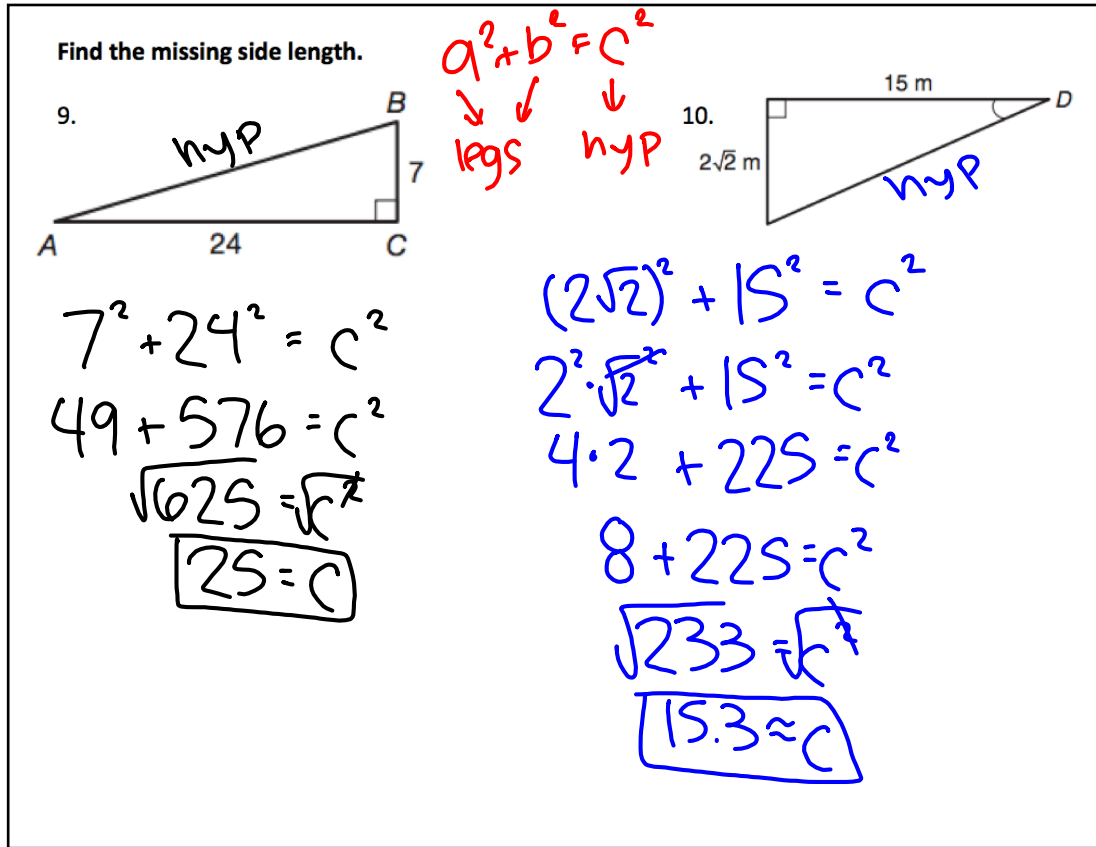 Find the missing side length.
a² + b² = c²
legs hyp
9.
hyp
B
7
A
24
C
7² + 24² = c²
49 + 576 = c²
√625 = √c²
25 = c
10.
15 m
D
2√2 m
hyp
(2√2)² + 15² = c²
2² · √2² + 15² = c²
4 · 2 + 225 = c²
8 + 225 = c²
√233 = √c²
15.3 ≈ c